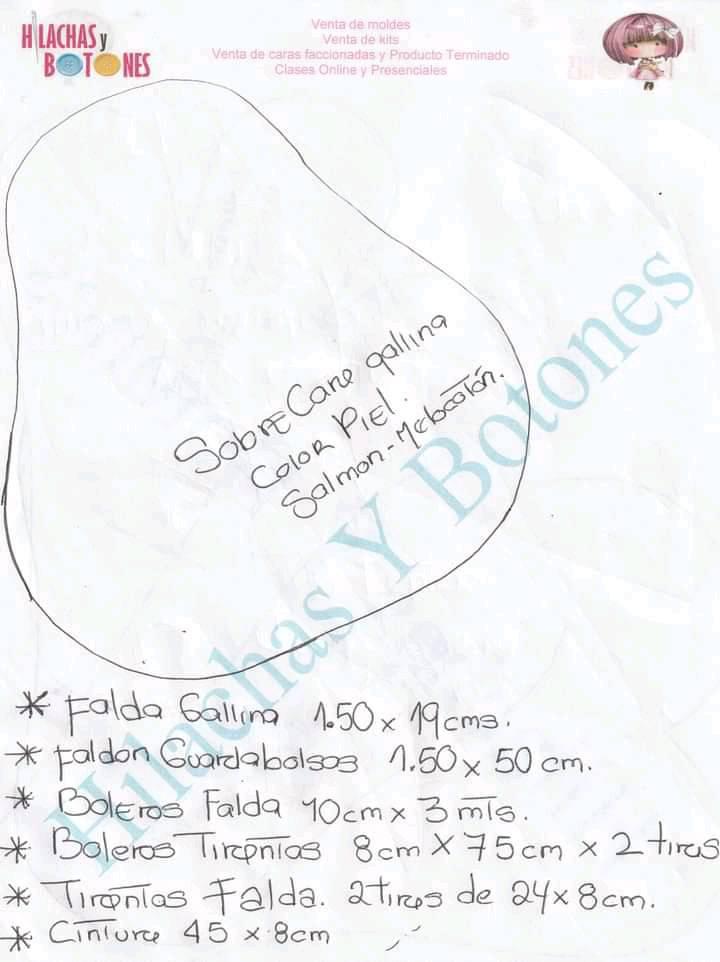 HILACHAS y
BOTONES
Venta de moldes
Venta de kits
Venta de caras faccionadas y Producto Terminado
Clases Online y Presenciales
Sobre Cara gallina
Color Piel.
Salmon-Melocotón.
Hilachas Y Botones
* Falda Gallina 1.50 x 19 cms.
* Faldon Guardabolsos 1.50 x 50 cm.
* Boleros Falda 10cm x 3 mts.
* Boleros Tirantas 8cm X 75cm x 2 tiras
* Tirantas Falda. 2 tiras de 24 x 8cm.
* Cintura 45 x 8cm